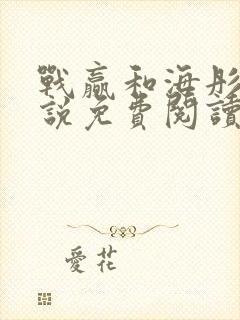 戰贏和海彤
說免費閱讀
愛花